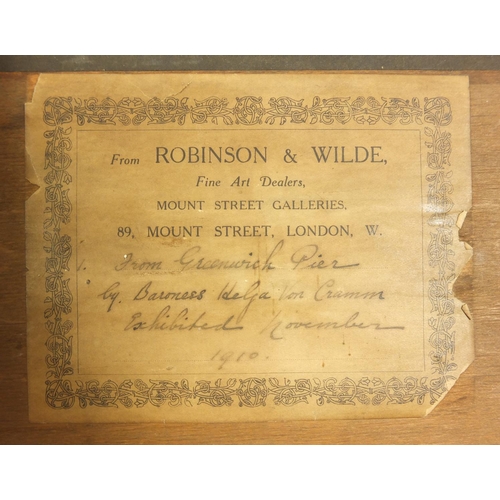 From ROBINSON & WILDE,
Fine Art Dealers,
MOUNT STREET GALLERIES,
89, MOUNT STREET, LONDON, W.
1. From Greenwich Pier
by. Baroness Helga Von Cramm
Exhibited November
1910.